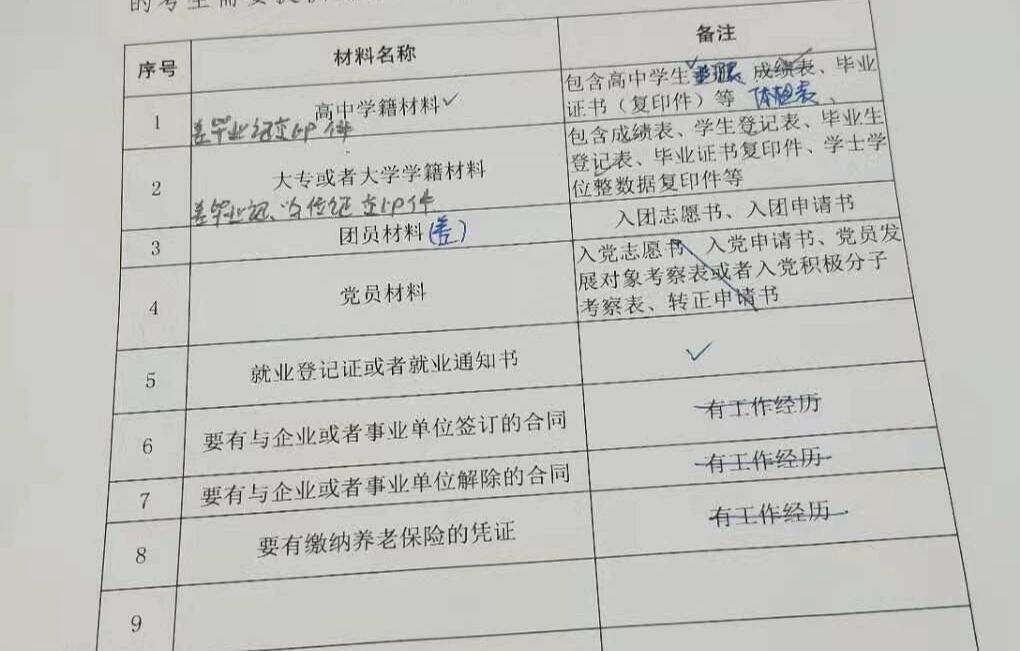 的考生需要提供
序号 材料名称 备注
1 高中学籍材料✓
差毕业证复印件
包含高中学生 成绩表、毕业
证书（复印件）等 体检表、
2 大专或者大学学籍材料
差毕业证、学位证复印件
包含成绩表、学生登记表、毕业生
登记表、毕业证书复印件、学士学
位整数据复印件等
3 团员材料(差) 入团志愿书、入团申请书
4 党员材料
入党志愿书、入党申请书、党员发
展对象考察表或者入党积极分子
考察表、转正申请书
5 就业登记证或者就业通知书 ✓
6 要有与企业或者事业单位签订的合同 有工作经历
7 要有与企业或者事业单位解除的合同 有工作经历
8 要有缴纳养老保险的凭证 有工作经历
9